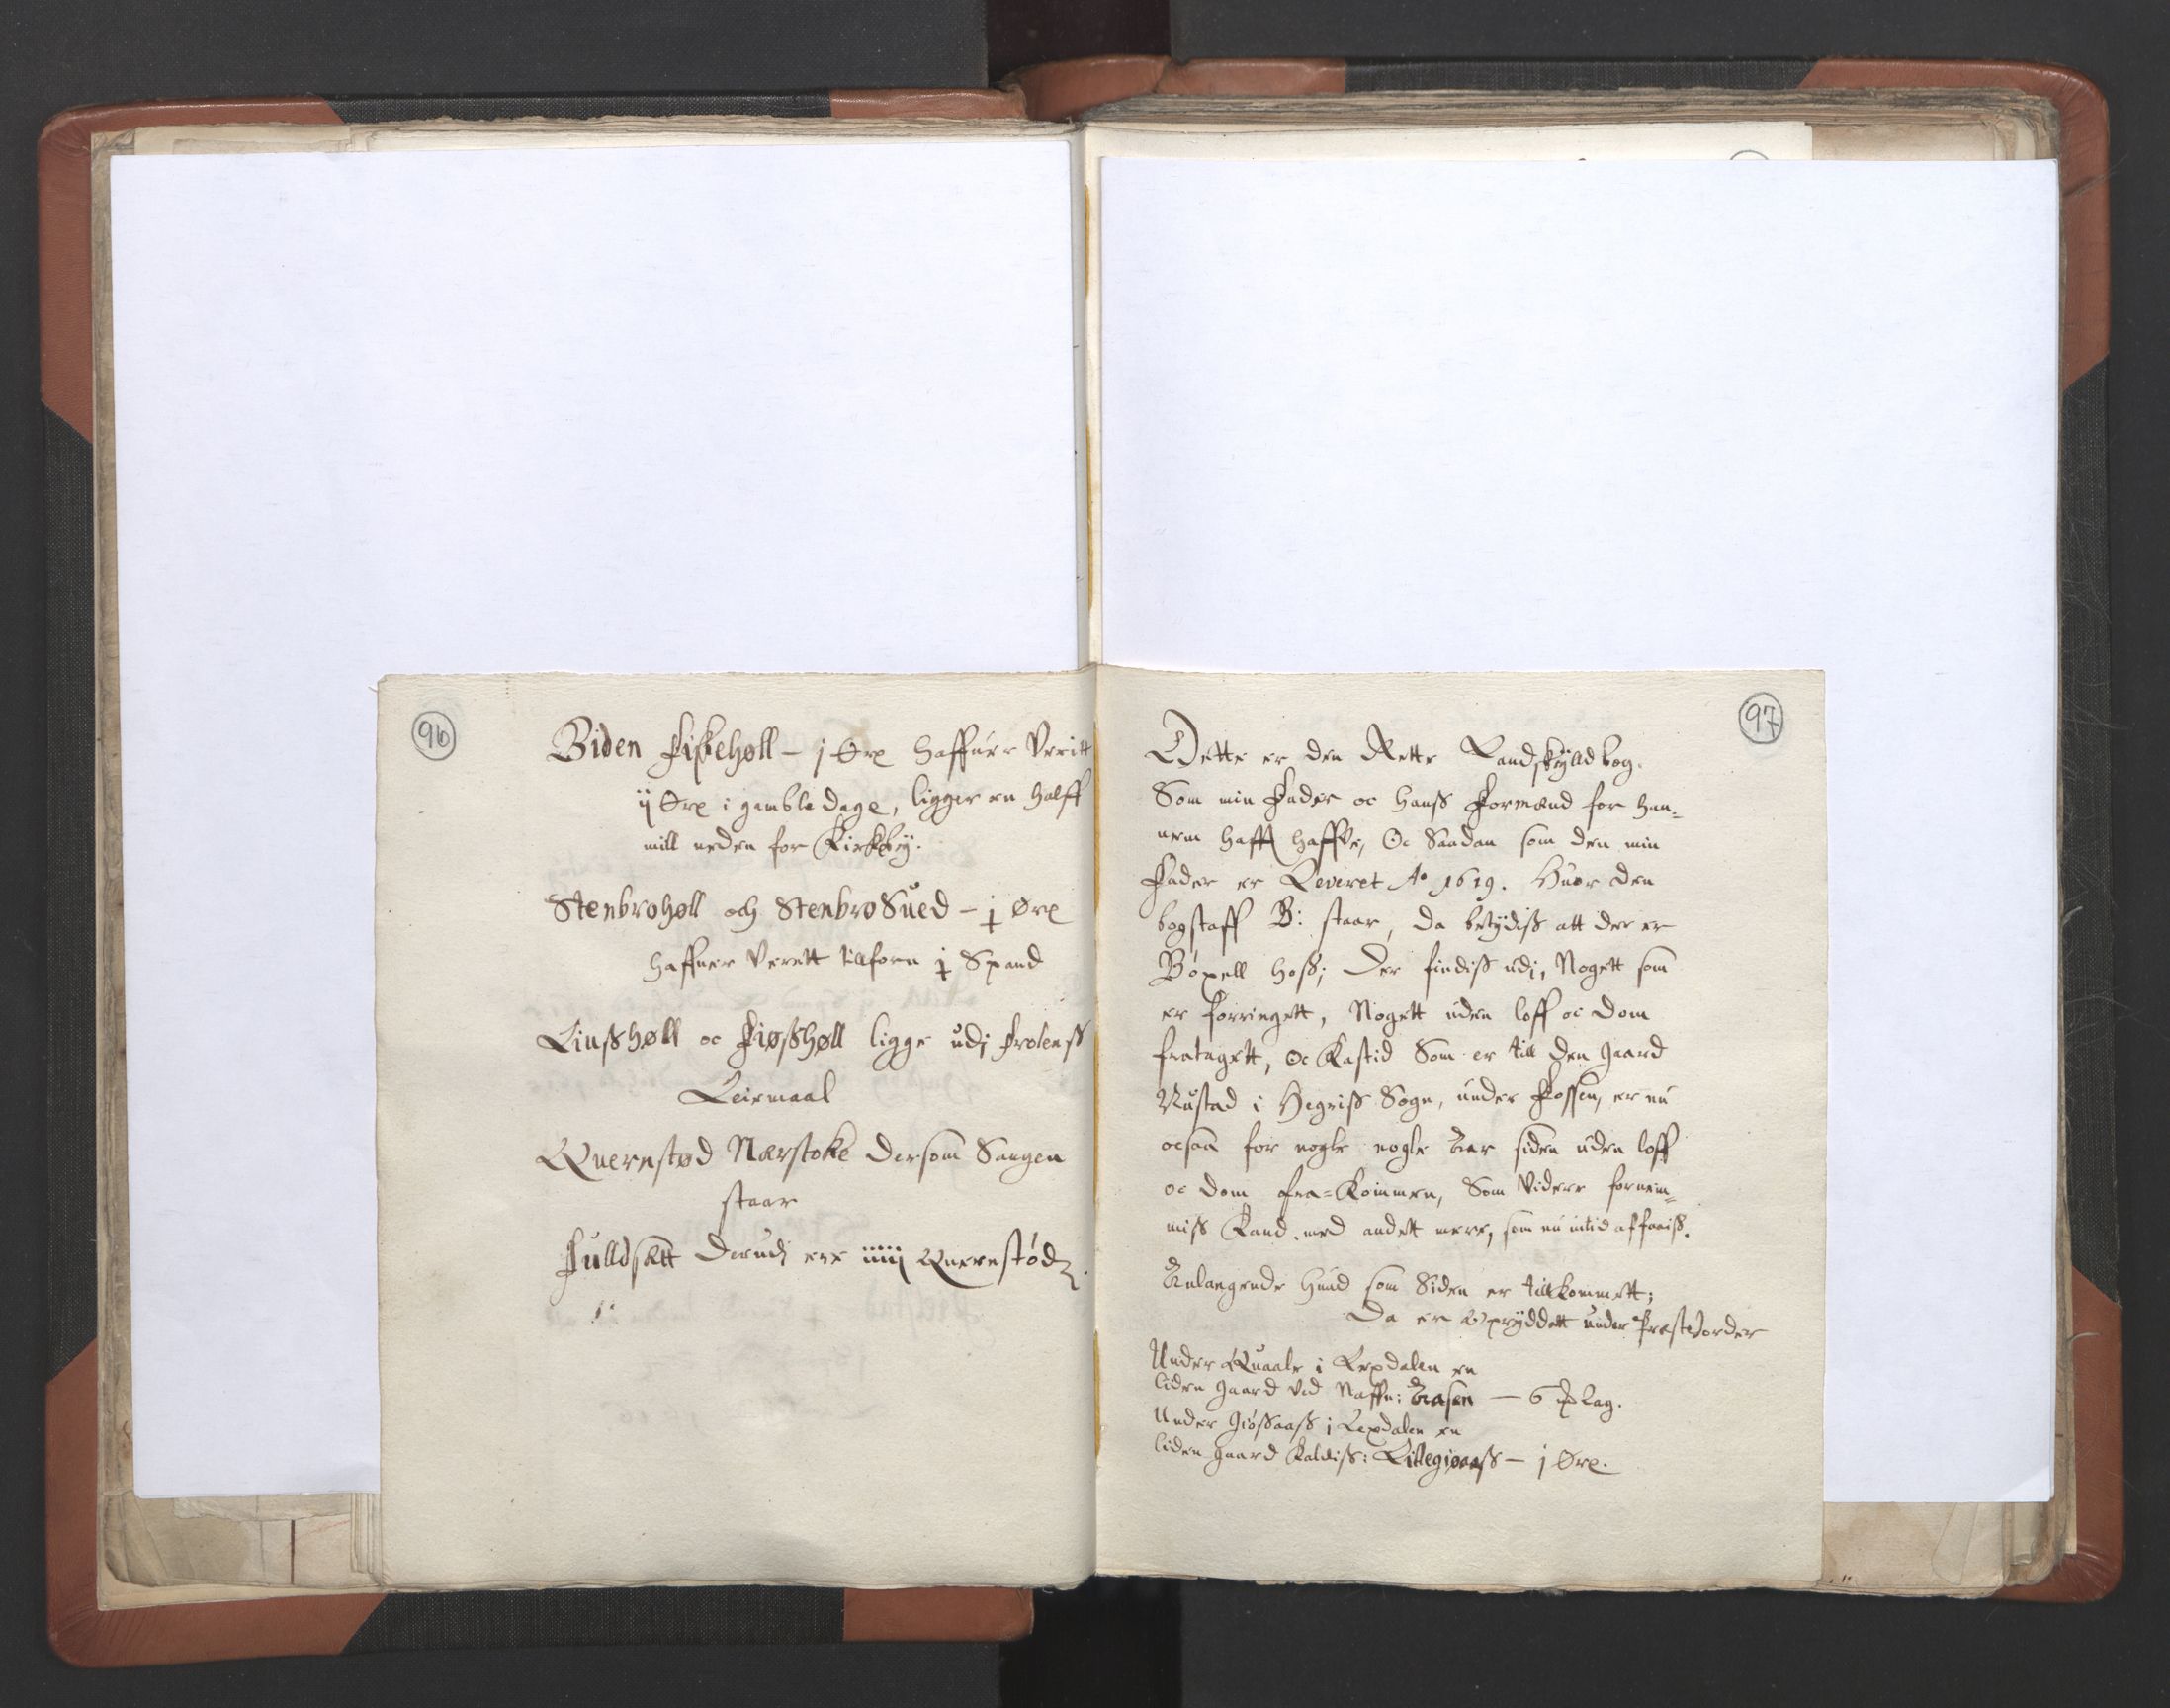 96
Biden Fiskehøll – j Øre haffuer Veritt
ij Øre i gamble dage, ligger en halff
mill neden for Kirkeby.
Stenbrohøll och StenbroSued – j Øre
haffuer Verett tillforn j Spand
Linsshøll oc Fiøsshøll ligge udj Frolenss
Leirmaal
Quernstød Nærstoke dersom Saugen
staar
Fulldsætt derudj ere iiiij Quernstød.
97
Dette er den Rette Landskylld bog.
Som min Fader oc hanss Formænd for han-
nem hafft haffve, Oc Saadan som den min
Fader er Leveret Ao 1619. Huor den
bogstaff B: staar, da betydiss att der er
Böxell hoss; Der findiss udj, Nogett som
er forringett, Nogett uden loff oc dom
fratagett, Oc Kastid Som er till den gaard
Rustad i Hegriss Sogn, under Fossen, er nu
ocsaa for nogle nogle Aar siden uden loff
oc dom fra-Kommen, Som Videre fornem-
miss Kand. med andett mere, som nu intid aff faaiss.
Anlangende huad som Siden er tillkommett;
Da er Opryddett under Præste Jorder
Under Quaale i Lexdalen en
liden gaard ved Naffn: Aasen – 6 #lag.
Under Giössaass i Lexdalen en
liden gaard kaldiss: Lillegiøaass – j Øre.